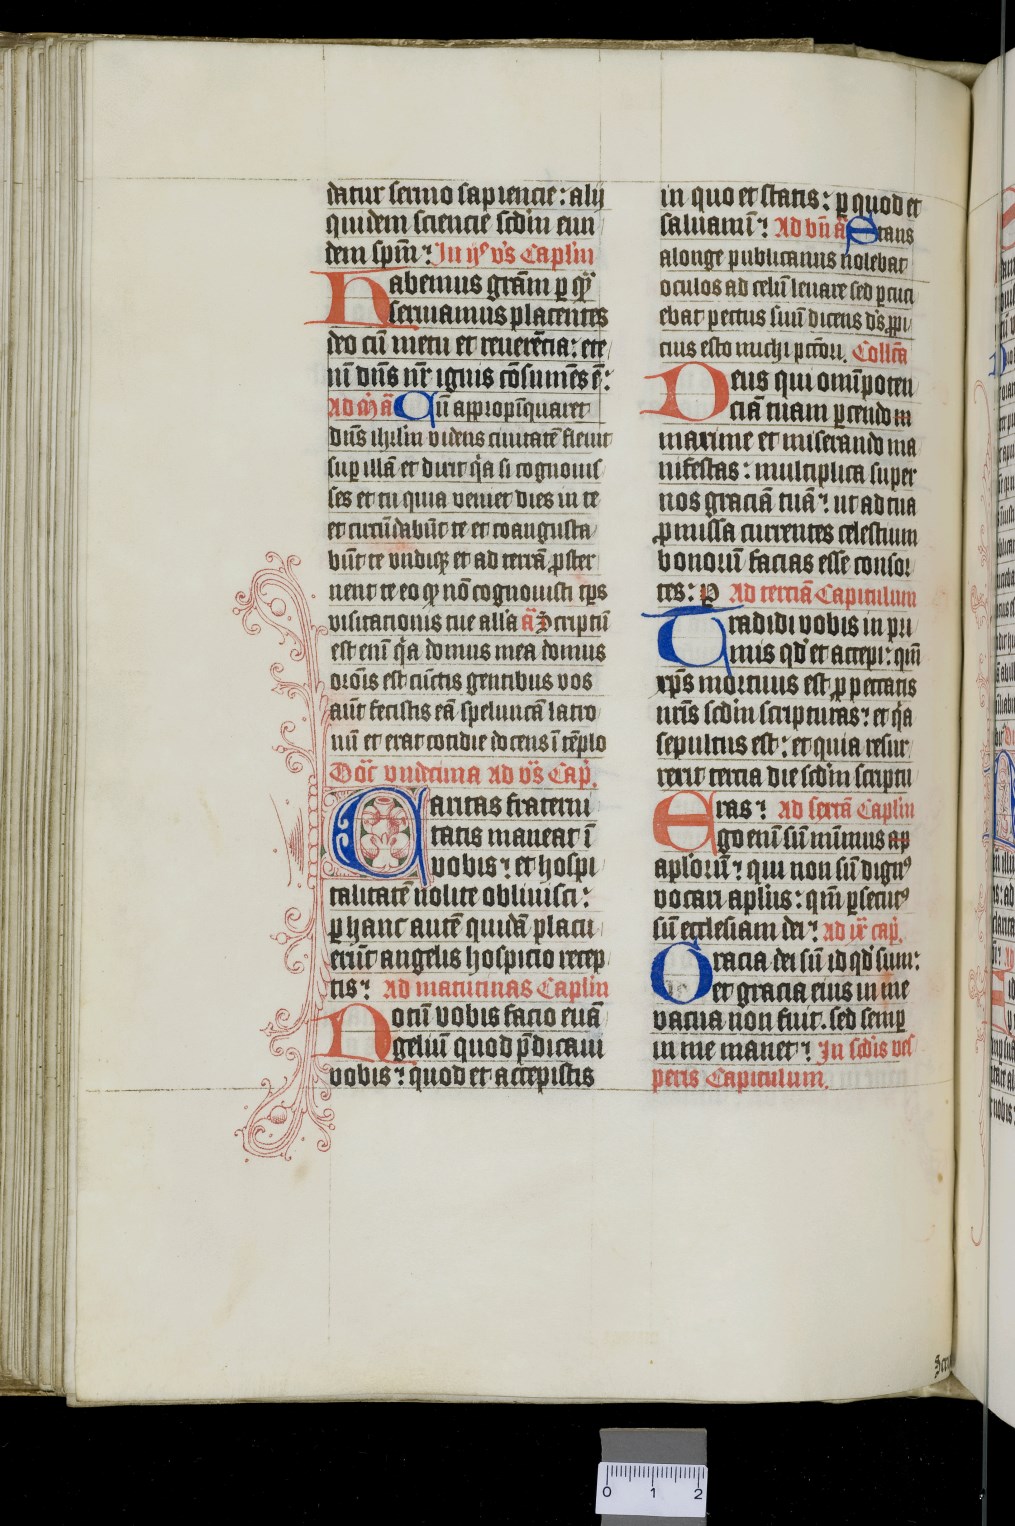 datur sermo sapiencie: alij
quidem sciencie scd̄m eun
dem spm̄ : In ijͥˢ vīs Capl̄m
Habemus grām p̱ qͣ
seruiamus placentes
deo cū metu et reuerēcia: ete
nī dn̄s nr̄ ignis cōsumēs ē:
Ad M̄ ā Cū appropīquaret
dn̄s ihrlm videns ciuitatē fleuit
sup illā et dixit qͥa si cognouis
ses et tu quia venient dies in te
et circūdabūt te et coangusta
būt te vndiqꝫ et ad terrā ꝓster
nent te eo qͩ nō cognouisti tp̄s
visitacionis tue all'a ā Scriptū
est enī qͥa domus mea domus
orōis est cūctis gentibus vos
aūt fecistis eā speluncā latro
nū et erat cotidie docens ī tēplo
Dōc̄ vndecima ad vīs Cap̄.
Caritas fraterni
tatis maneat ī
vobis : et hospi
talitatē nolite obliuisci :
p̱ hanc autē quidā placu
erūt angelis hospicio recep
tis : Ad matutinas Capl̄m
Notū vobis facio euā
geliū quod p̄dicaui
vobis : quod et accepistis
in quo et statis : p̱ quod et
saluamī : Ad bn̄ ā Stans
a longe publicanus nolebat
oculos ad celū leuare sed p̱cuci
ebat pectus suū dicens ds̄ ꝓpi
cius esto michi pctōri. Collc̄a
Deus qui omīpoten
ciā tuam p̱cendo m
maxime et miserando ma
nifestas : multiplica super
nos graciā tuā : ut ad tua
ꝓmissa currentes celestium
bonorū facias esse consor
tes: ꝑ Ad terciā Capitulum
Tradidi vobis in pri
mis qd̄ et accepi : qm̄
xp̄s mortuus est ꝓ peccatis
nr̄is scd̄m scripturas : et qͥa
sepultus est : et quia resur
rexit tercia die scd̄m scriptu
ras : Ad sextā Capl̄m
Ego enī sū mīmus ap
aplorū : qui non sū dignꝰ
vocari aplūs : qm̄ p̱secutꝰ
sū ecclesiam dei : Ad ix cap̄.
Gracia dei sū id qd̄ sum :
et gracia eius in me
vacua non fuit. sed semp̱
in me manet : In scd̄is ves
peris Capitulum.